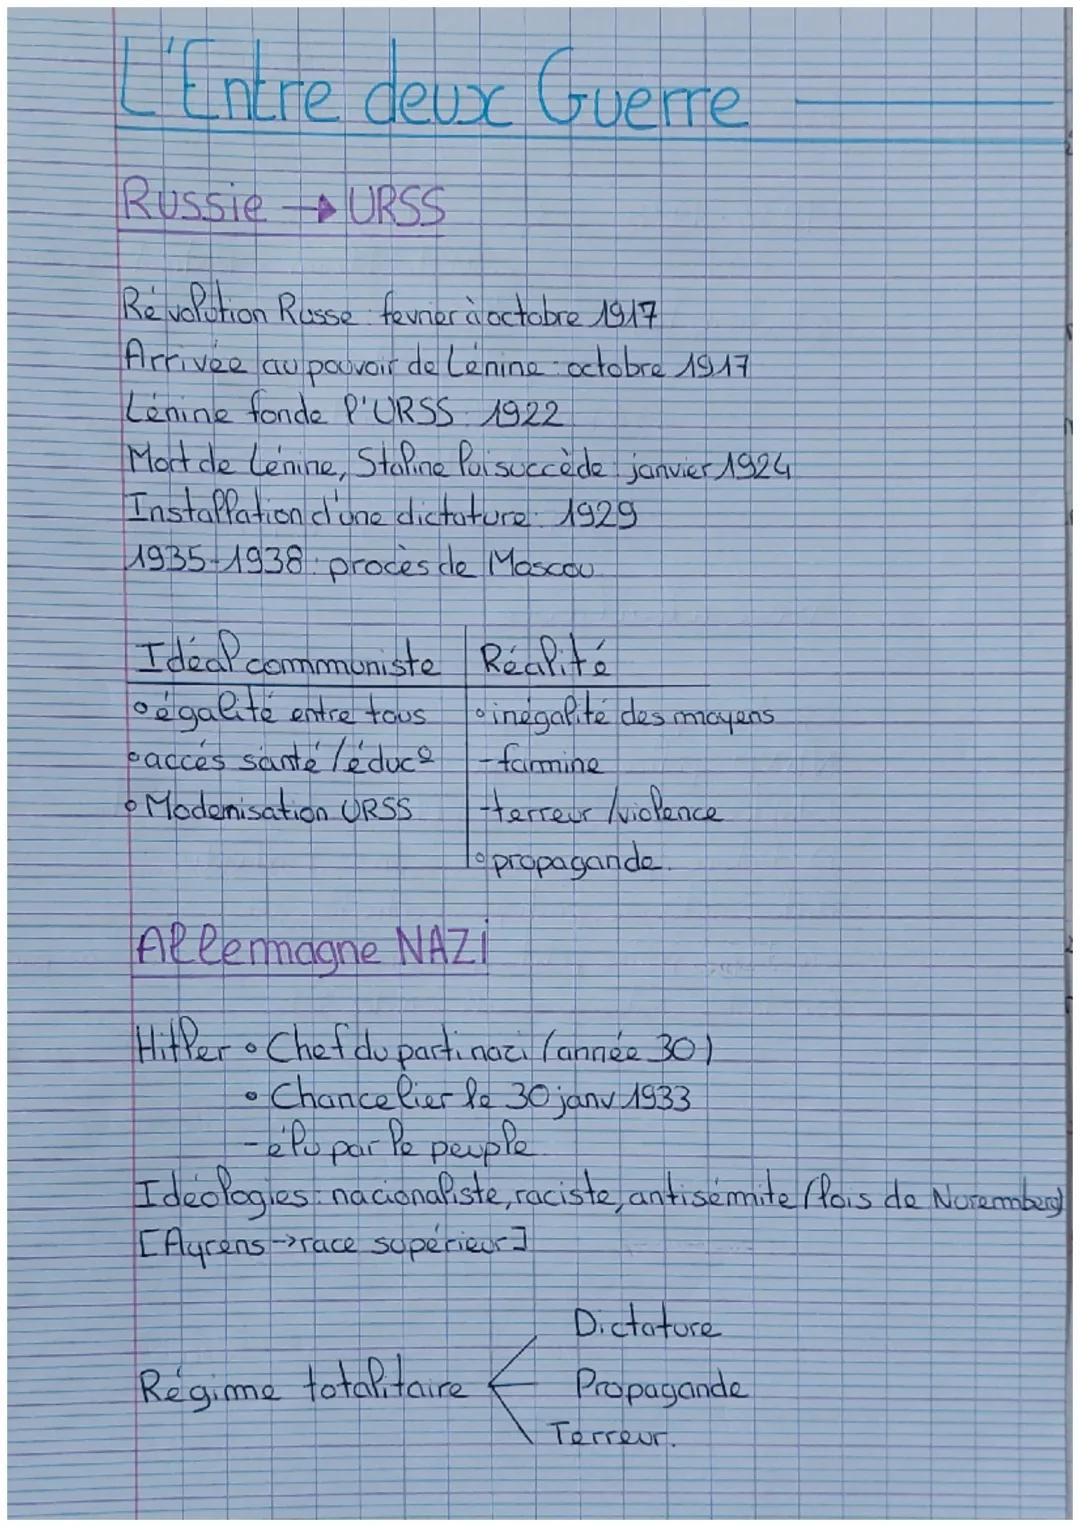 L'Entre deux Guerre
Russie → URSS
Révolution Russe : fevrier à octobre 1917
Arrivée au pouvoir de Lénine : octobre 1917
Lénine fonde l'URSS : 1922
Mort de Lénine, Staline lui succède : janvier 1924
Installation d'une dictature : 1929
1935-1938 : procès de Moscou
Idéal communiste | Réalité
• égalité entre tous | • inégalité des moyens
• accés santé / éduc° | - famine
• Modernisation URSS | - terreur / violence
• propagande.
Allemagne NAZI
Hitler • Chef du parti nazi (année 30)
• Chancelier le 30 janv 1933
- élu par le peuple
Idéologies : nacionaliste, raciste, antisémite (lois de Nuremberg)
[Ayrens → race supérieur]
Dictature
Régime totalitaire < Propagande
Terreur.